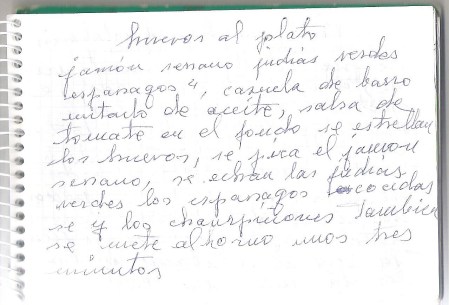 huevos al plato
jamón serrano judias verdes
esparragos 4, cazuela de barro
untarlo de aceite, salsa de
tomate en el fondo se estrellan
los huevos, se pica el jamon
serrano, se echan las judias
verdes los esparragos cocidas
se y los champiñones tambien
se mete al horno unos tres
minutos